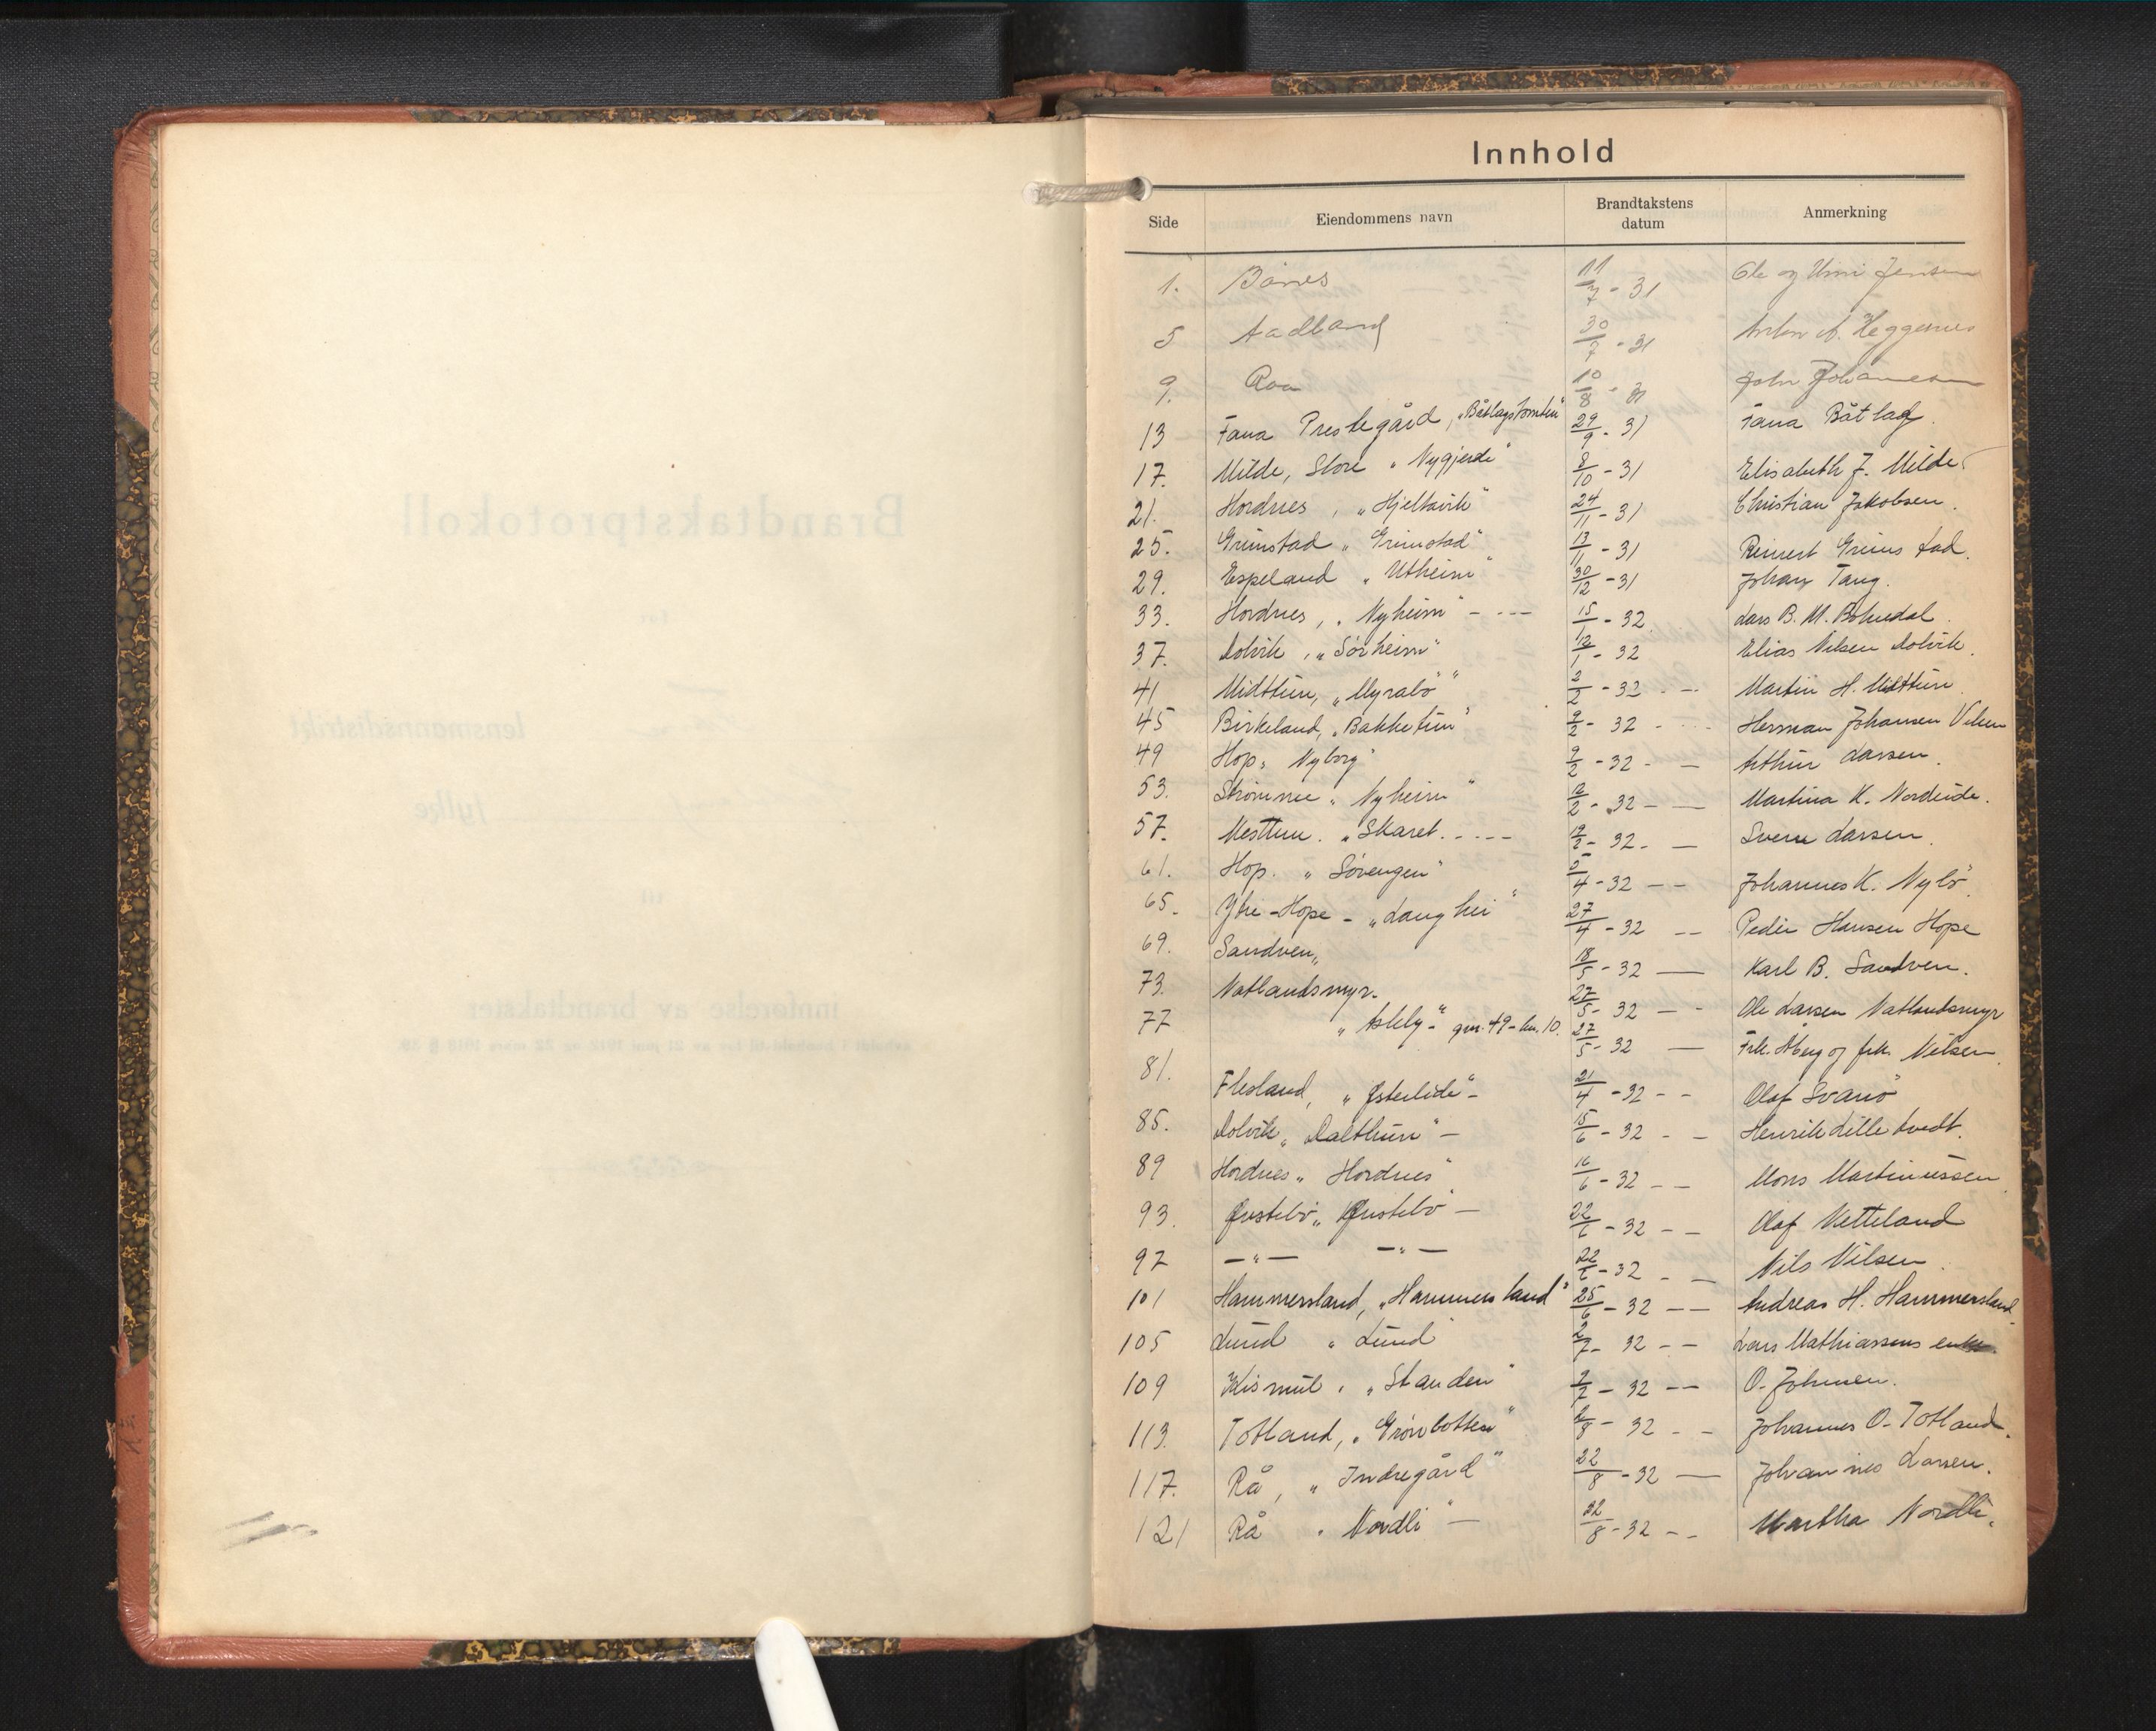 Innhold
Side Eiendommens navn Brandtakstens datum Anmerkning
1. Bønes 11/7 - 31 Ole og Unni Jensen
5 Aadland 30/7 - 31 Anton A. Heggernes
9. Raa 10/8 - 31 John Johannesen
13 Fana Prestegård, „Båtlagstomten“ 29/9 - 31 Fana Båtlag.
17. Milde, Store „Nygjerde“ 8/10 - 31 Elisabeth J. Milde
21. Hordnes, „Hjeltavik“ 24/11 - 31 Christian Jakobsen.
25. Grimstad „Grimstad“ 13/11 - 31 Reinert Grimstad.
29. Espeland „Utheim“ 30/12 - 31 Johan Tang.
33. Hordnes, „Nyheim“ - --- 15/1 - 32 Lars B. M.
37. Dolvik, „Sørheim“ 12/1 - 32 Elias Nilsen Dolvik.
41 Midttun, „Myrabö“ 2/2 - 32 - - Martin H. Midttun.
45 Birkeland, „Bakketun“ 9/2 - 32 - Herman Johansen
49 Hop, „Nyborg“ 9/2 - 32 - — Arthur Larsen.
53. Strømme „Nyheim“ 12/2 - 32 - — Martina K. Nordeide.
57. Nesttun. „Skaret. - - - - 19/2 - 32 - — Sverre Larsen.
61. Hop. „Sørengen“ 5/4 - 32 - - Johannes K. Nybö.
65. Ytre-Hope - „Langhei“ 27/4 - 32 - - Peder Hansen Hope
69. Sandven„ 18/5 - 32 — Karl B. Sandven.
73. Natlandsmyr. 27/5 - 32 — - Ole Larsen Natlandsmyr
77 „Askely“ - gnr. 49 - bn. 10. 27/5 - 32 — Frk. Åberg og frk. Nilsen.
81. Flesland, „Østerlide“ - 21/4 - 32 - - Olaf Svanö
85. Dolvik „Dalthun“ — 15/6 - 32 - - Henrik Lilletvedt.
89 Hordnes „Hordnes“ 16/6 - 32 - - Mons Martinussen
93. Øvstebö „Øvstebö — 22/6 - 32 - - Olaf Vetteland
97 —„— —„— 22/6 - 32 - — Nils Nilsen.
101 Hammersland, „Hammersland“ 25/6 - 32 - - Andreas H. Hammersland.
105 Lund „Lund“ 2/7 - 32 - - Lars Mathiassens enke.
109 Kismul, „Standen“ 2/7 - 32 - - O. Johnsen.
113. Totland, „Grønbotten“ 8 - 32 - - Johannes O. Totland.
117. Rå, „Indregård“ 22/8 - 32 — Johannes Larsen.
121 Rå „Nordli“ — 22/8 - 32 - - Martha Nordli.
Brandtakstprotokoll
for
lensmannsdistrikt
fylke
til
innførelse av brandtakster
avholdt i henhold til lov av 21 juni 1912 og 22 mars 1918 § 39.